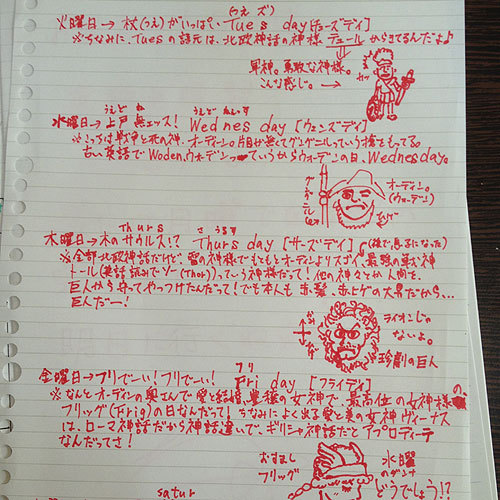 (つえ ズ)
火曜日→杖(つえ)がいっぱい、Tues day[チューズデイ]
※ちなみに、Tuesの語元は、北欧神話の神様 テュールからきてるんだよ♪
軍神。勇敢な神様。
こんな感じ。→
うえど ね うえど ねぇっす
水曜日→上戸 無エッス! Wed nes day [ウェンズデイ]
※こっちは戦神と死の神、オーディーン。片目が無くてグングニルっていう槍をもってる。
古い英語でWoden、ウォーデンっていうからウォーデンの日、Wednesday。
グングニル
オーディン。
(ウォーデン)
ひげ
thurs さ うるす
木曜日→木のサウルス!? Thurs day [サーズデイ]
(後で息子になった)
※全部北欧神話だけど、雷の神様でもともとオーディンよりスゴイ最強の軍神
トール(英語読みでソー(Thor))っていう神様だって!他の神々とか人間を、
巨人から守ってやっつけたんだって!でも本人も赤髪、赤ヒゲの大男だから...
巨人だー!
ライオンじゃ
ないよ。
珍劇の巨人
フリ
金曜日→フリでーい!フリでーい! Fri day [フライディ]
※なんとオーディンの奥さんで愛と結婚、豊穣の女神で、最高位の女神様の
フリッグ(Frig)の日なんだって!ちなみによく出る愛と美の女神ヴィーナス
は、ローマ神話だから神話違いで、ギリシャ神話だとアプロディーテ
なんだってさ!
おすまし
フリッグ
水曜
のダンナ
どうでしょう!?
satur